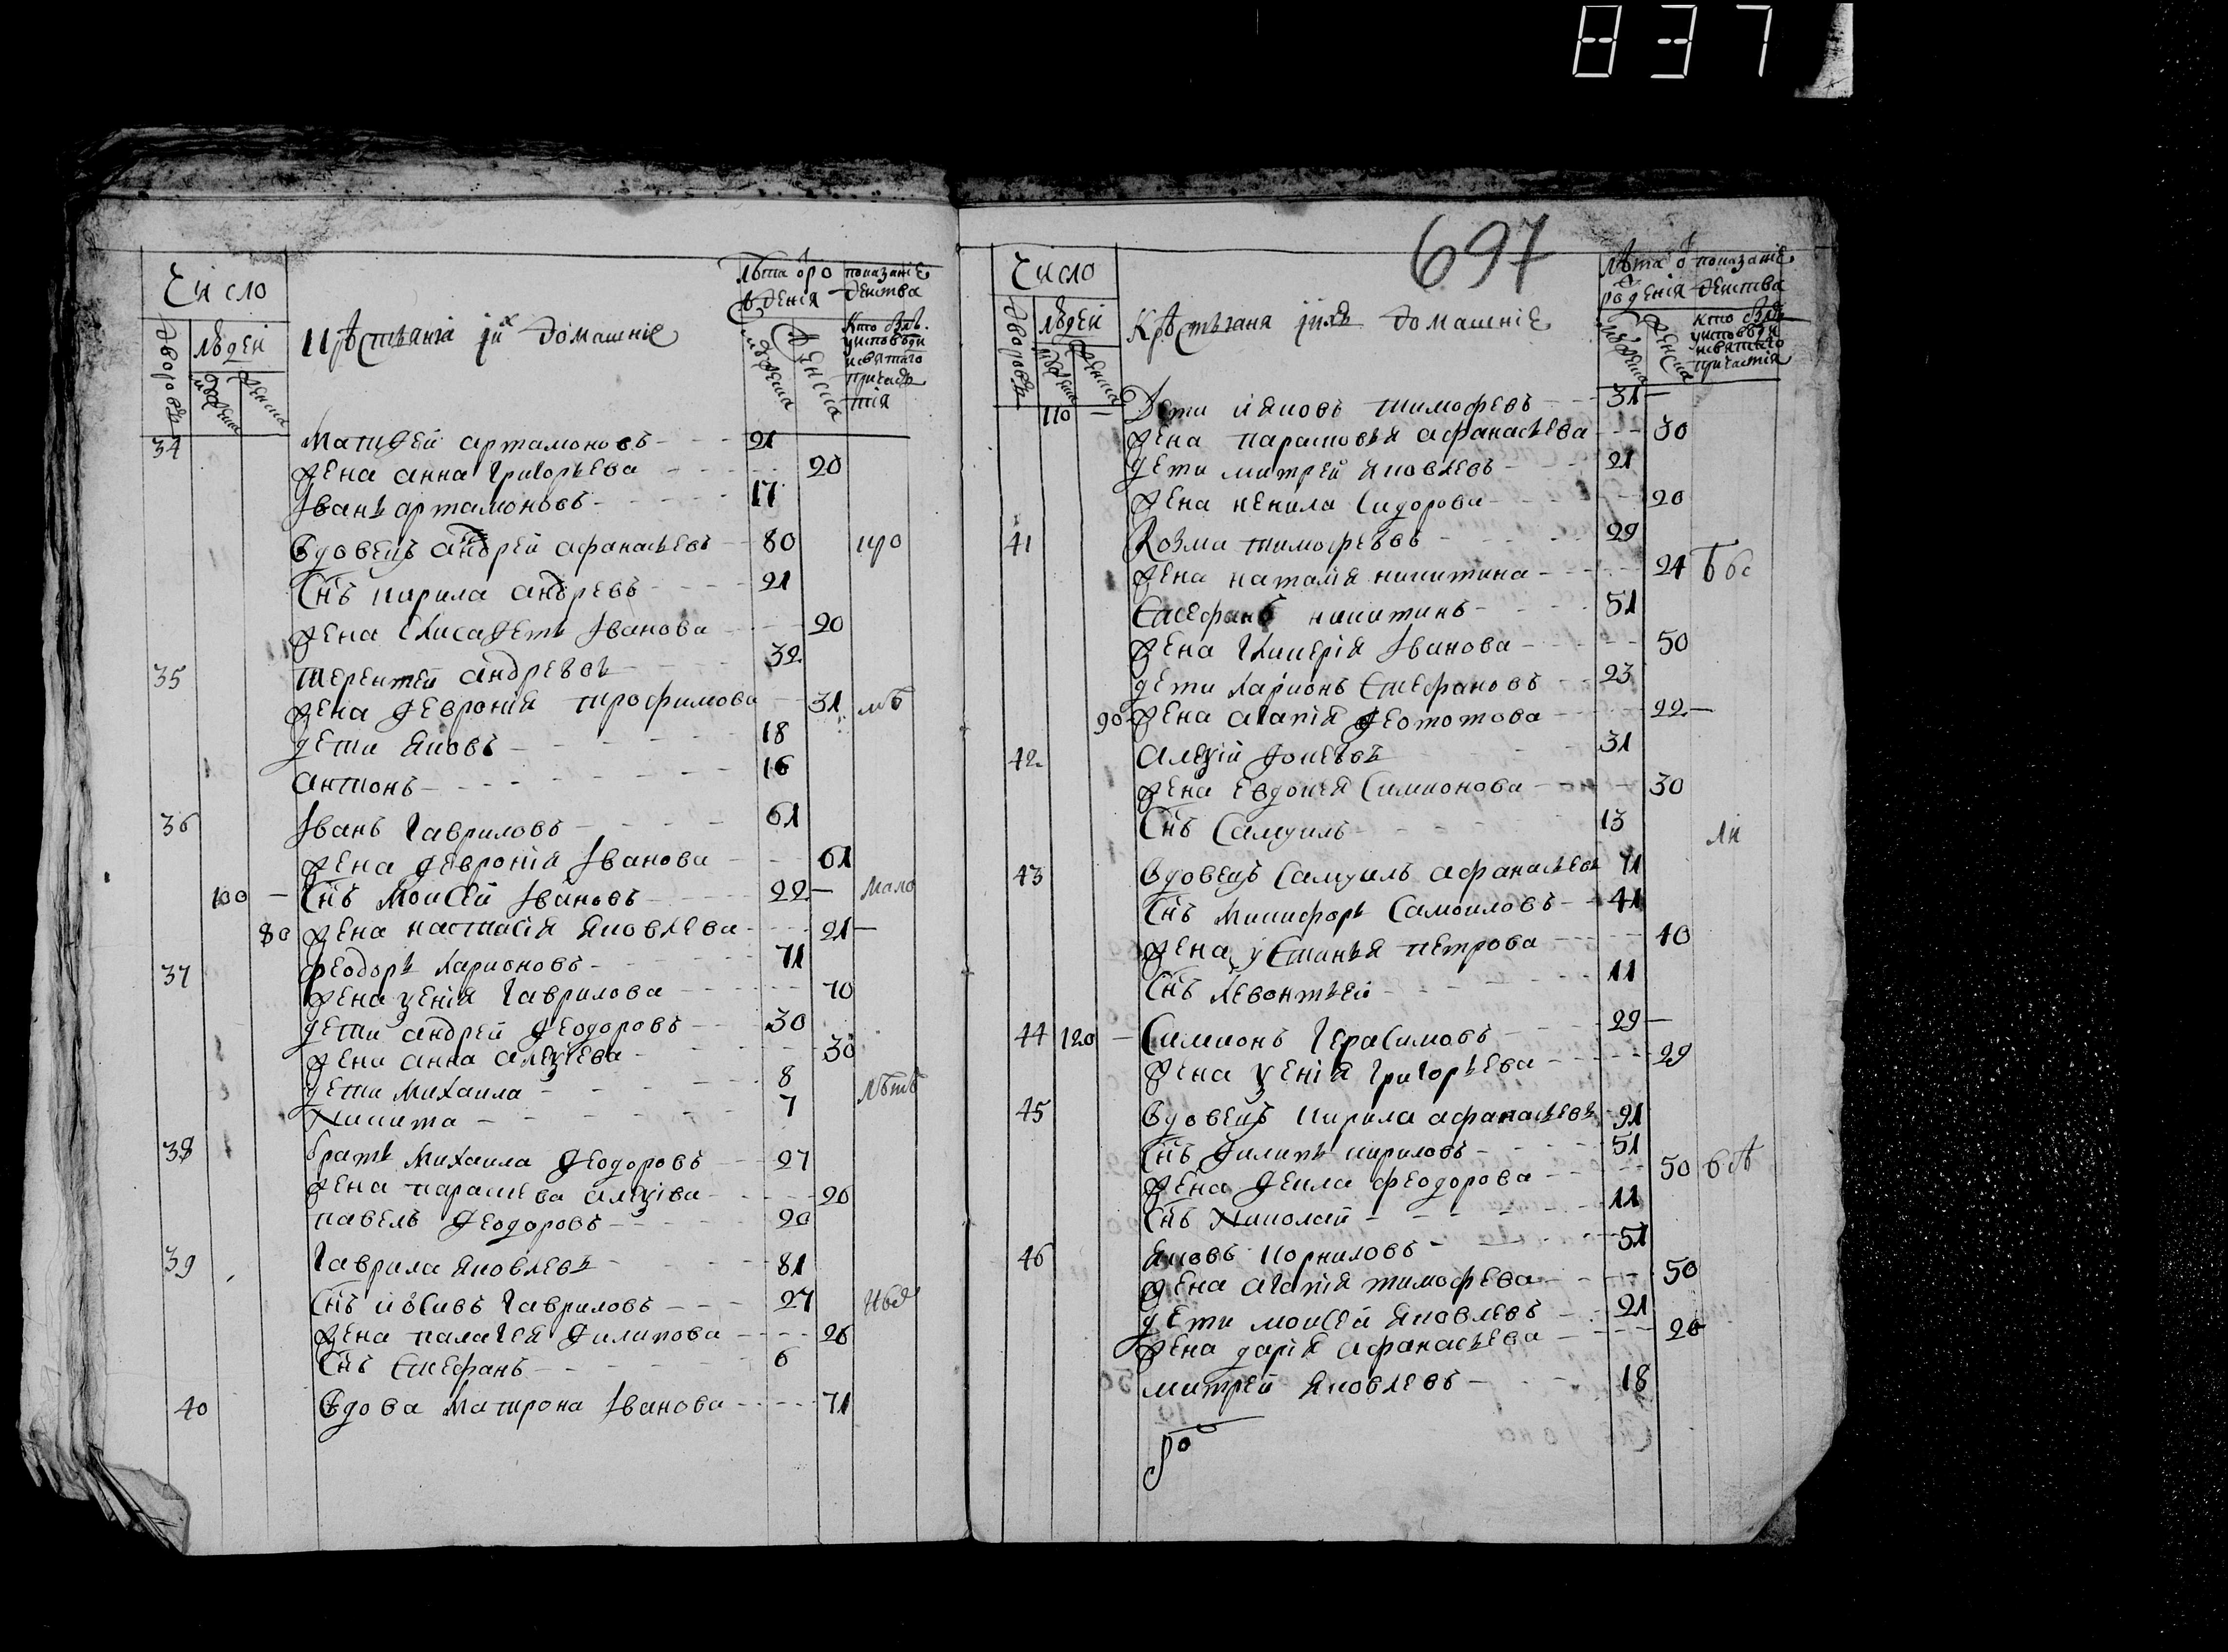 837
Число
лѣта ѿро показаніе
жденія действа
Крѣстьяня іи домашніе
дворовъ
людей
мужеска
женска
мужеска
женска
Кто былъ
у исповеди
и святаго
причас
тія
34 Матфей артамоновъ 21
жена анна григорьева 20
Іванъ артамоновъ 17
вдовецъ андрей афанасьевъ 80
Снъ кирила андревъ 21
жена елисафеть Іванова 20
35 терентей андревъ 32
жена февронія трофимова 31
дети яковъ 18
антонъ 16
36 Іванъ гавриловъ 61
жена февронія Іванова 61
100 Снъ Моисей Івановъ 22 мало
80 жена настасія яковлева 21
37 феодоръ ларионовъ 71
жена ѯенія гаврилова 70
дети андрей феодоровъ 30
жена анна алеѯіева 30
дети михаила 8 лѣтъ
никита 7
38 братъ михаила феодоровъ 27
жена параскева алеѯіва 26
павелъ феодоровъ 20
39 гаврила яковлевъ 81
Снъ иѡсивъ гавриловъ 27
жена палагея филипова 26
Снъ стефанъ 6
40 вдова матрона Іванова 71
697
Число
лѣта ѿ показаніе
рожденія действа
Крѣстьяня ихъ домашніе
дворовъ
людей
мужеска
женска
мужеска
женска
кто былъ
у исповѣди
и святаго
причастія
110 Дети ияковъ тимофевъ 31
жена парасковья афанасьева 30
дети митрей яковлевъ 21
жена ненила сидорова 20
41 Козма тимофевъ 29
жена наталія никитина 24
Стефанъ никитинъ 51
жена гликерія Іванова 50
дети ларионъ стефановъ 23
90 жена агапія феототова 22
42 алеѯій фокевъ 31
жена евдокея симионова 30
Снъ самуилъ 13
43 вдовецъ самуилъ афанасьевъ 71
Снъ микифоръ самоиловъ 41
жена устинья петрова 40
Снъ левонтьей 11
44 120 Симионъ герасимовъ 29
жена ѯенія григорьева 29
45 вдовецъ кирила афанасьевъ 91
Снъ филипъ кириловъ 51
жена фекла феодорова 50
Снъ николай 11
46 яковъ корниловъ 51
жена агапія тимофева 50
дети моисей яковлевъ 21
жена дарія афанасьева 20
митрей яковлевъ 18